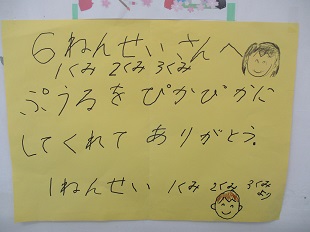 6ねんせいさんへ
1くみ 2くみ 3くみ
ぷうるをぴかぴかに
してくれて ありがとう。
1ねんせい 1くみ 2くみ 3くみ
より